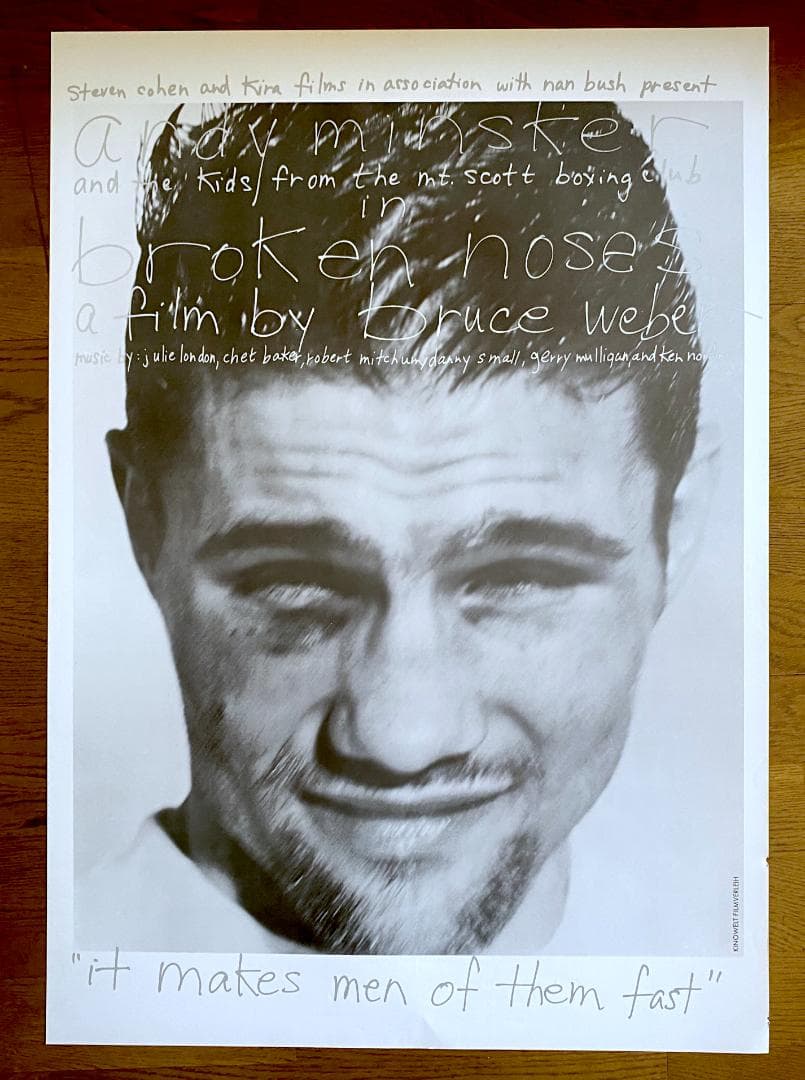 steven cohen and kira films in association with nan bush present
andy minsker
and the kids from the mt. scott boxing club
in
broken noses
a film by bruce weber
music by: julie london, chet baker, robert mitchum, danny small, gerry mulligan, and ken no
KINOWELT FILMVERLEIH
"it makes men of them fast"